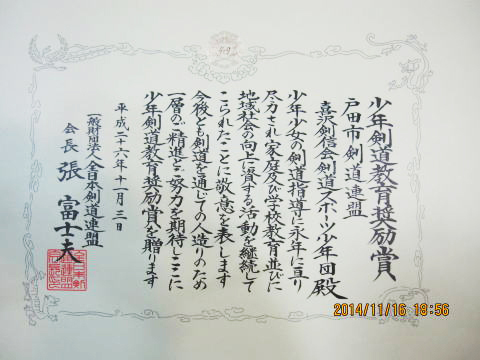 少年剣道教育奨励賞
戸田市剣道連盟
喜沢剣信会剣道スポーツ少年団殿
少年少女の剣道指導に永年に亘り
尽力され家庭及び学校教育並びに
地域社会の向上に資する活動を継続して
こられたことに敬意を表します
今後とも剣道を通じての人造りのため
一層のご精進とご努力を期待しここに
少年剣道教育奨励賞を贈ります
平成二十六年十一月三日
一般財団法人全日本剣道連盟
会長 張 富士夫
2014/11/16 18:56